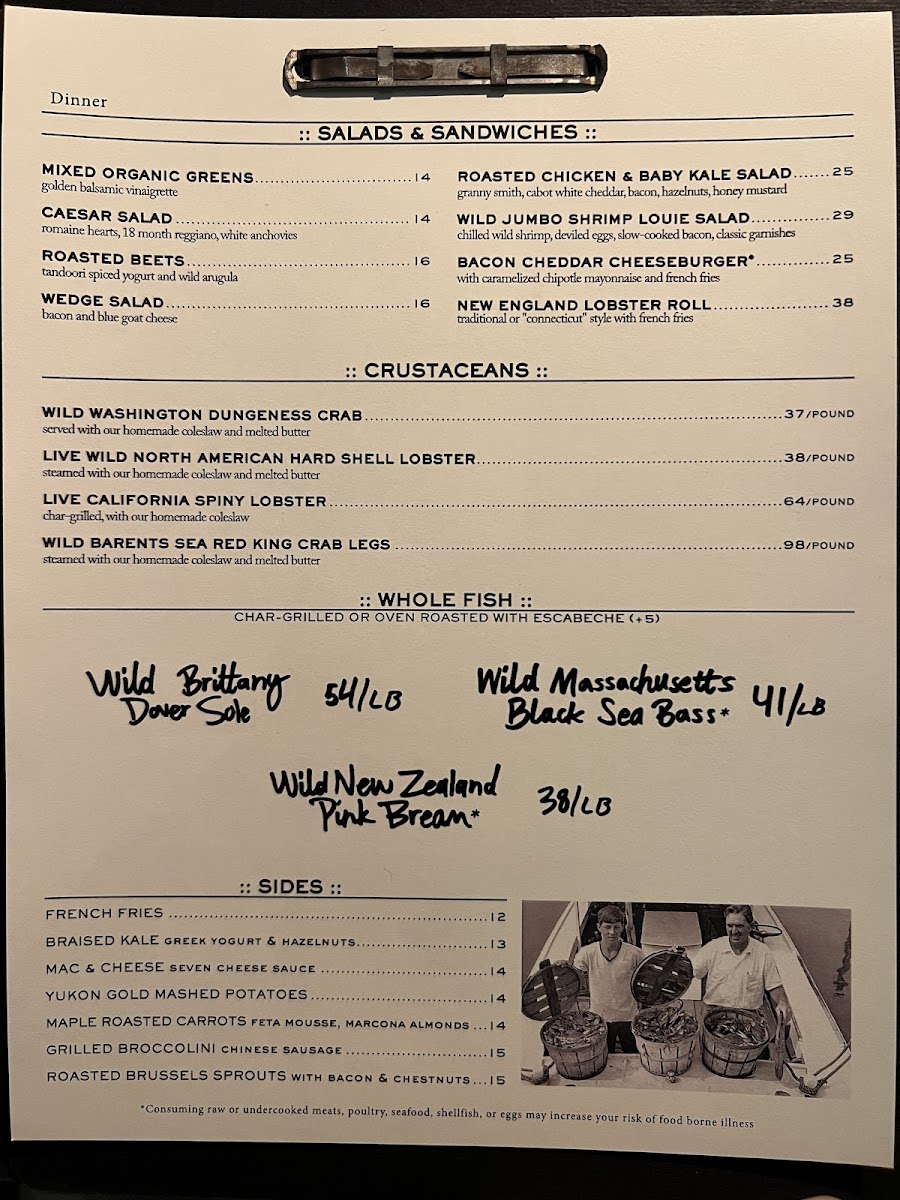 Dinner
:: SALADS & SANDWICHES ::
MIXED ORGANIC GREENS..............................14
golden balsamic vinaigrette
CAESAR SALAD..............................14
romaine hearts, 18 month reggiano, white anchovies
ROASTED BEETS..............................16
tandoori spiced yogurt and wild arugula
WEDGE SALAD..............................16
bacon and blue goat cheese
ROASTED CHICKEN & BABY KALE SALAD.......25
granny smith, cabot white cheddar, bacon, hazelnuts, honey mustard
WILD JUMBO SHRIMP LOUIE SALAD..............29
chilled wild shrimp, deviled eggs, slow-cooked bacon, classic garnishes
BACON CHEDDAR CHEESEBURGER*..............25
with caramelized chipotle mayonnaise and french fries
NEW ENGLAND LOBSTER ROLL..............38
traditional or "connecticut" style with french fries
:: CRUSTACEANS ::
WILD WASHINGTON DUNGENESS CRAB..............................37/POUND
served with our homemade coleslaw and melted butter
LIVE WILD NORTH AMERICAN HARD SHELL LOBSTER..............................38/POUND
steamed with our homemade coleslaw and melted butter
LIVE CALIFORNIA SPINY LOBSTER..............................64/POUND
char-grilled, with our homemade coleslaw
WILD BARENTS SEA RED KING CRAB LEGS..............................98/POUND
steamed with our homemade coleslaw and melted butter
:: WHOLE FISH ::
CHAR-GRILLED OR OVEN ROASTED WITH ESCABECHE (+5)
Wild Brittany
Dover Sole 54/LB
Wild Massachusetts
Black Sea Bass* 41/LB
Wild New Zealand
Pink Bream* 38/LB
:: SIDES ::
FRENCH FRIES..............................12
BRAISED KALE GREEK YOGURT & HAZELNUTS..............13
MAC & CHEESE SEVEN CHEESE SAUCE..............14
YUKON GOLD MASHED POTATOES..............14
MAPLE ROASTED CARROTS FETA MOUSSE, MARCONA ALMONDS...14
GRILLED BROCCOLINI CHINESE SAUSAGE..............15
ROASTED BRUSSELS SPROUTS WITH BACON & CHESTNUTS...15
*Consuming raw or undercooked meats, poultry, seafood, shellfish, or eggs may increase your risk of food borne illness